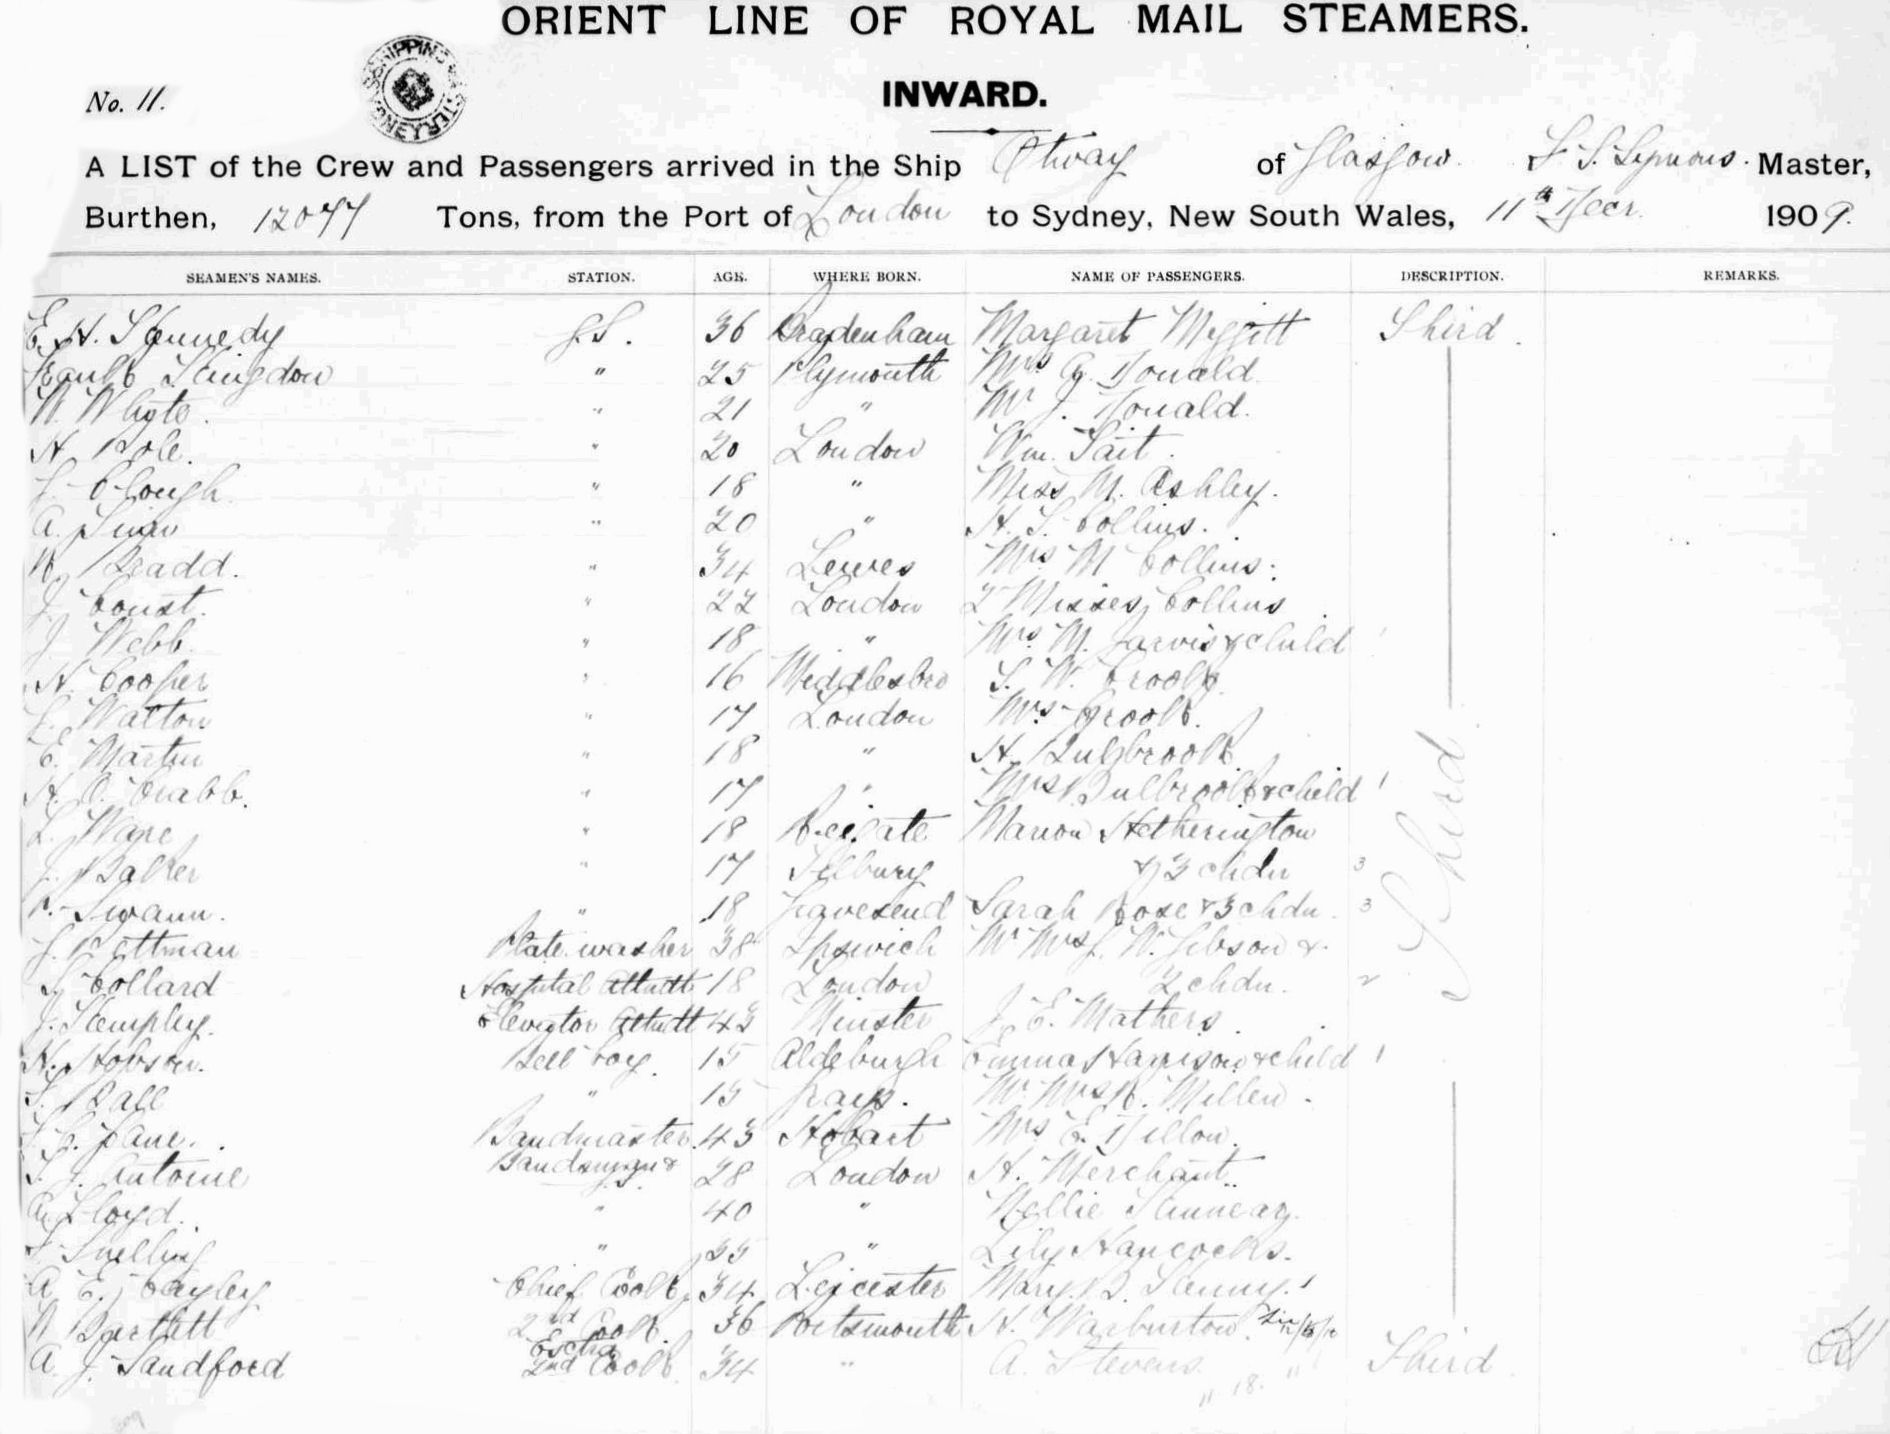 ORIENT LINE OF ROYAL MAIL STEAMERS.
INWARD.
No. 11.
A LIST of the Crew and Passengers arrived in the Ship Otway of Glasgow. Symons. Master,
Burthen, 12077 Tons, from the Port of London to Sydney, New South Wales, 11th Decr. 1909.
SEAMEN'S NAMES. STATION. AGE. WHERE BORN. NAME OF PASSENGERS. DESCRIPTION. REMARKS.
E. H. Kennedy G.S. 36 Margaret Meggitt Third.
Frank Kingdon " 25 Plymouth Mrs Donald
W. Whyte. " 21 " Mr J. Donald.
H. Pole. " 20 London Wm. Tait.
Clough. " 18 " Miss M. Ashley.
A. " 20 " H. S. Collins.
Beadd. " 34 Lewes Mrs M Collins.
J. Coust. " 22 London 2 Misses Collins
J. Webb. " 18 " Mrs M. Jarvis & child 1
H. Cooper " 16 Middlesbro S. W. Crook
Walton " 17 London Mrs Crook.
E. Martin " 18 " H. Bulbrook
H. Crabb. " 17 " Mrs Bulbrook & child 1
L. Ware " 18 Reigate Marion Hetherington
J. Baker " 17 Tilbury & 3 chdn 3
Swann. " 18 Gravesend Sarah Rose & 3 chdn. 3
Pettman Plate washer 38 Ipswich Mr Mrs J. W. Gibson &
Collard Hospital Attndt 18 London 2 chdn. 2
J. Kemplay. Elevator Attndt 43 Minster J. E. Mathers.
H. Hobson. Bell boy. 15 Aldeburgh Emma Harrison & child 1
Ball " 15 Grays. Mr Mrs R. Millen.
Bandmaster. 43 Hobart Mrs E. Dillon.
Antoine Bandsman & G.S. 28 London H. Merchant.
A. Lloyd. " 40 " Nellie Kinnear.
Snelling " 35 " Lily Hancocks.
A. E. Bayley Chief Cook 34 Leicester Mary B. Kenny.
W Bartlett 2nd Cook. 36 Portsmouth H. Warburton.
A. J. Sandford Extra 2nd Cook. 34 " A. Stevens Third.
Third
" 18. "